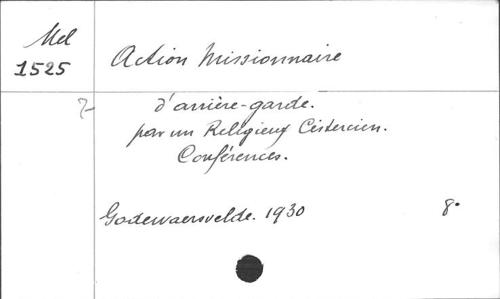 Mel
1525
Action Missionnaire
d'arrière-garde.
par un Religieux Cistercien.
Conférences.
Godewaersvelde. 1930 8°